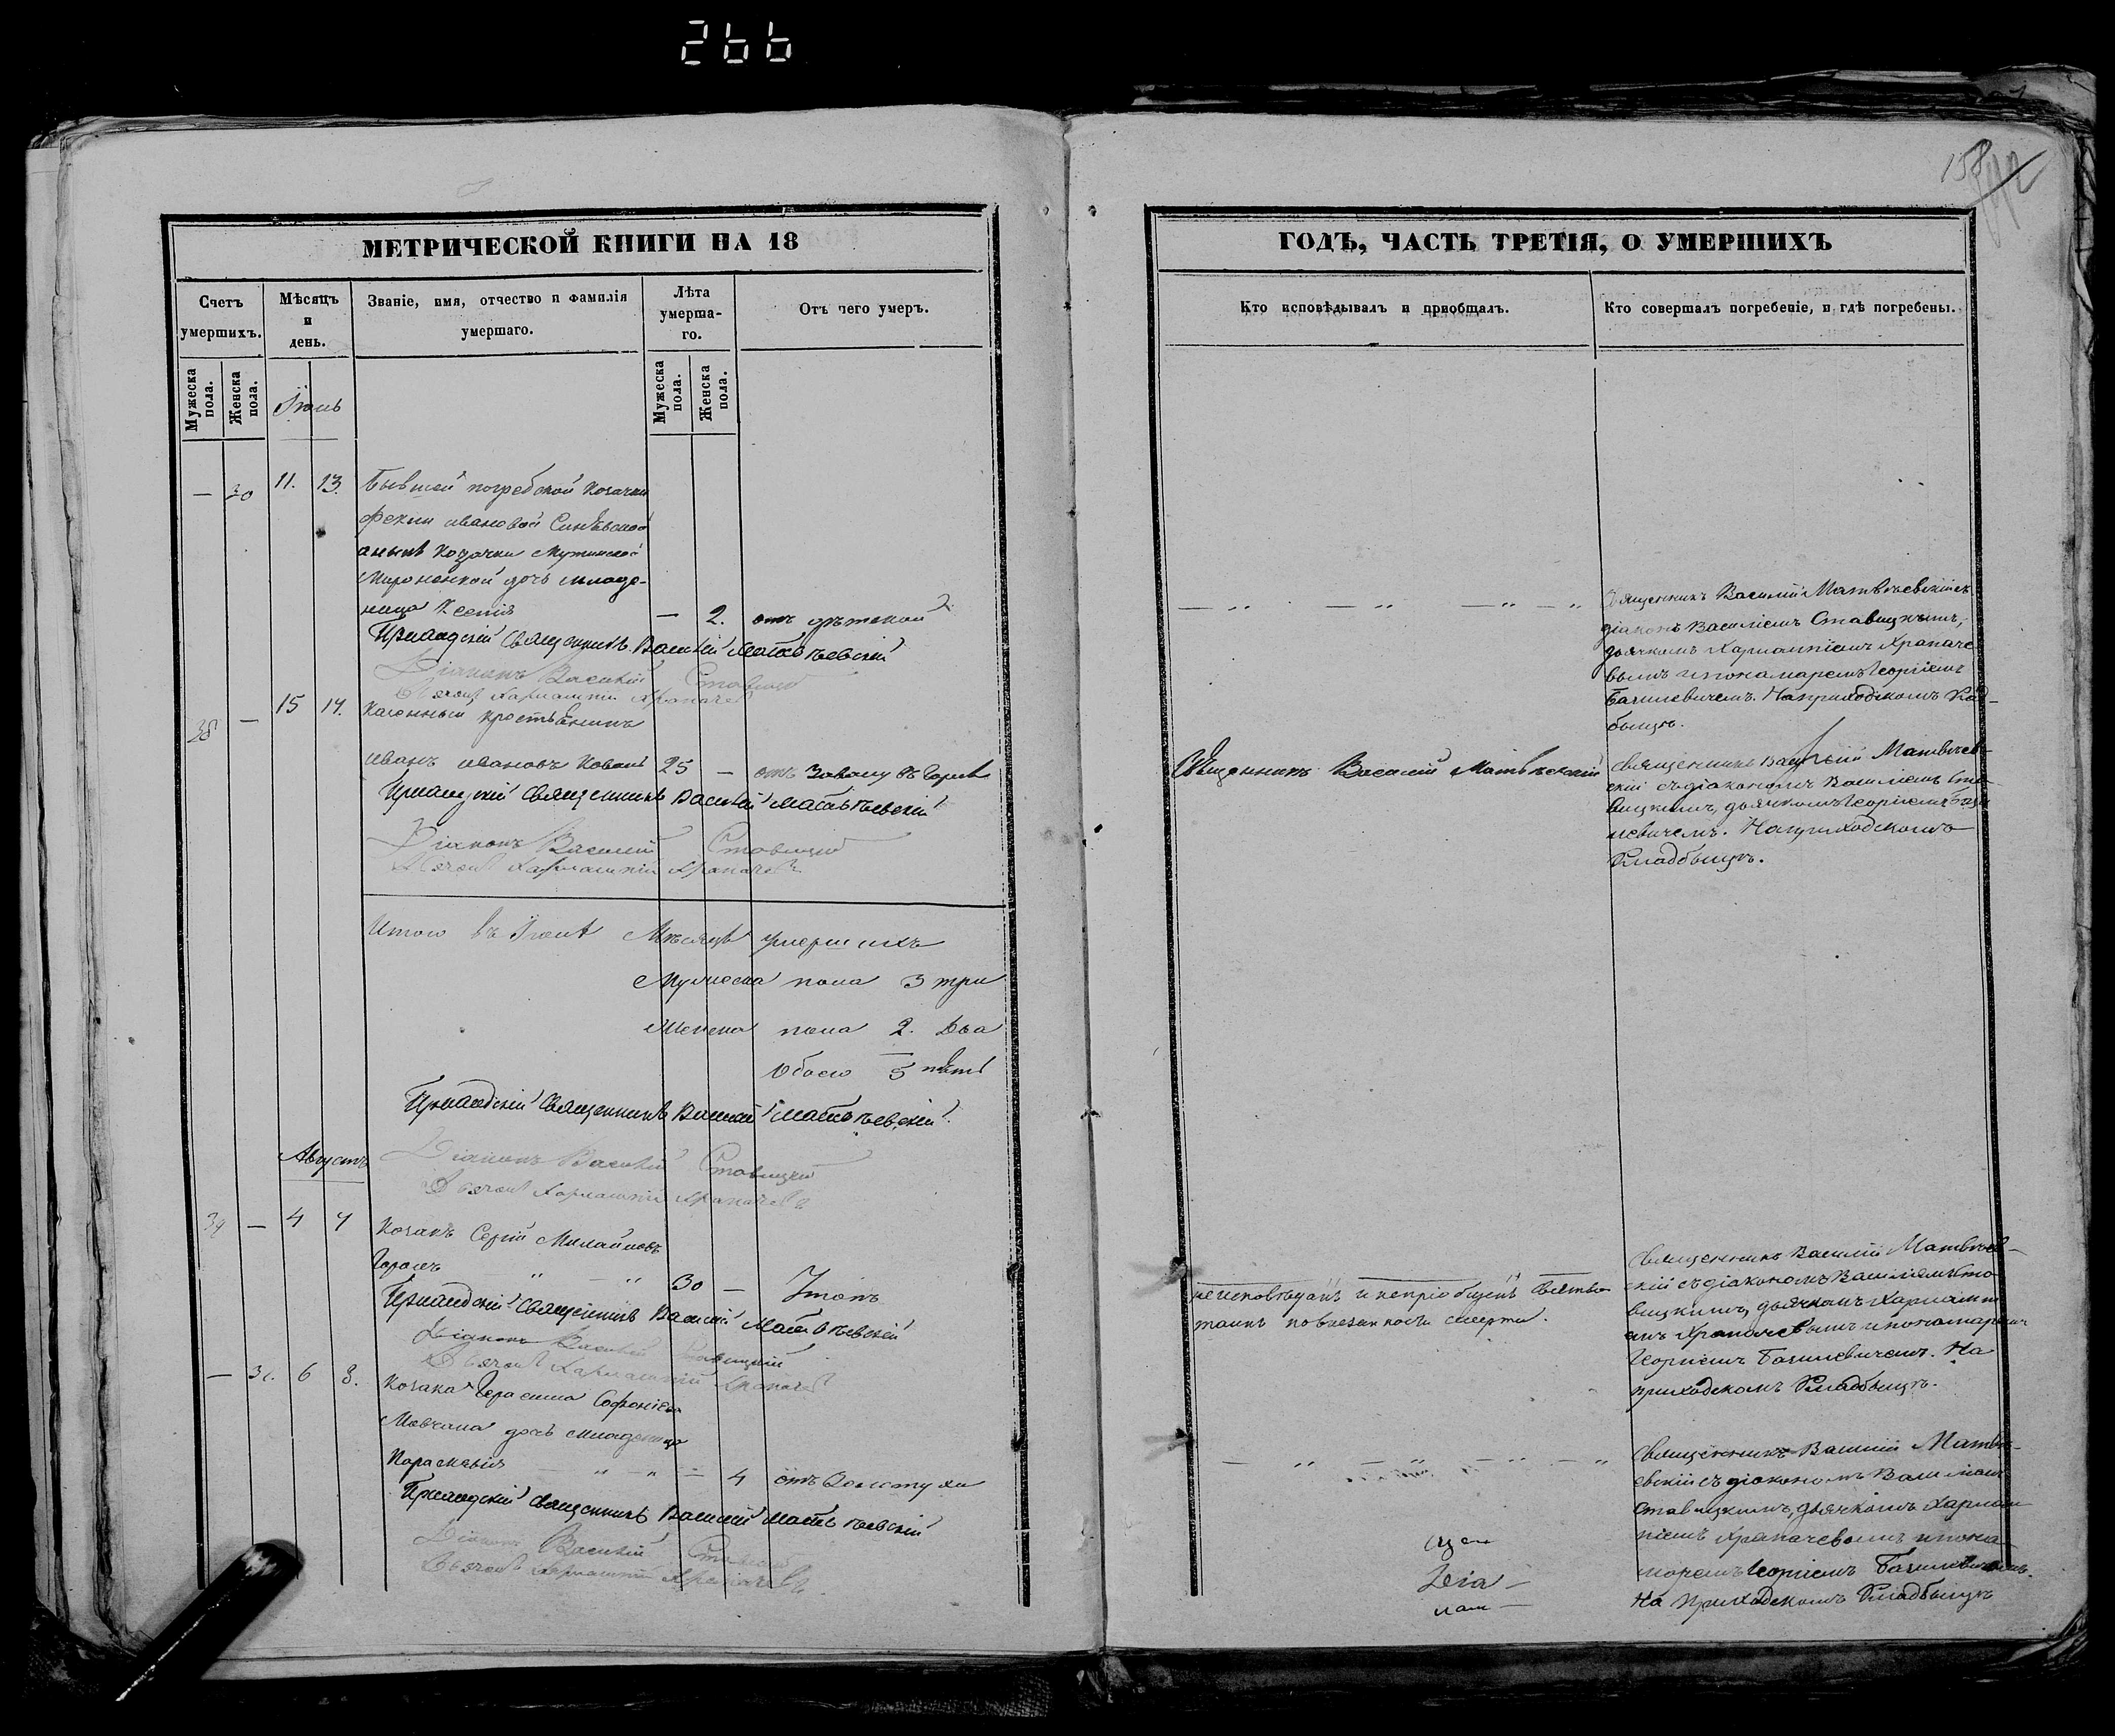 266
158
МЕТРИЧЕСКОЙ КНИГИ НА 18
Счетъ умершихъ.
Мѣсяцъ и день.
Званіе, имя, отчество и фамилія умершаго.
Лѣта умерша-
го.
Отъ чего умеръ.
Мужеска пола.
Женска пола.
Мужеска пола.
Женска пола.
— 30 11. 13. Бывшей погребской козачки
ивановой
козачки
дочь младе-
ница Ксенія — 2. отъ дѣтской
Приходскій Священникъ Василій Матвѣевскій
Діаконъ Василій Ставицкій
Дьячокъ Харлампій Храпачевъ
38 — 15 17. Казенный крестьянинъ
иванъ ивановъ Коваль 25 — отъ
Приходскій Священникъ Василій Матвѣевскій
Діаконъ Василій Ставицкій
Дьячокъ Харлампій Храпачевъ
Итого въ Мѣсяцѣ умершихъ
Мужеска пола 3 три
Женска пола 2. Два
Обоего 5 пять
Приходскій Священникъ Василій Матвѣевскій
Августъ
Діаконъ Василій Ставицкій
Дьячокъ Харлампій Храпачевъ
39 — 4 7 Козакъ Сергій Михайловъ
30 — Утопъ
Приходскій Священникъ Василій Матвѣевскій
Діаконъ Василій Ставицкій
Дьячокъ Харлампій Храпачевъ
— 31. 6 8. Козака Герасима Софоніева
Мовчана дочь младеница
Параскевія — „ — „ — 4 отъ
Приходскій Священникъ Василій Матвѣевскій
Діаконъ Василій Ставицкій
Дьячокъ Харлампій Храпачевъ
ГОДЪ, ЧАСТЬ ТРЕТІЯ, О УМЕРШИХЪ
Кто исповѣдывалъ и пріобщалъ.
Кто совершалъ погребеніе, и гдѣ погребены.
— „ — „ — „ — „
Священникъ Василій Матвѣевскій съ
діакономъ Василіемъ Ставицкимъ,
дьячкомъ Харлампіемъ Храпаче-
вымъ и пономаремъ Георгіемъ
Базилевичемъ. На приходскомъ Клад-
бищѣ.
Священникъ Василій Матвѣевскій
Священникъ Василій Матвѣев-
скій съ діакономъ Василіемъ Ста-
вицкимъ, дьячкомъ Георгіемъ Бази-
левичемъ. На приходскомъ
Кладбищѣ.
неисповѣданъ и непріобщенъ Святыхъ
таинъ по внезапности смерти.
Священникъ Василій Матвѣев-
скій съ діакономъ Василіемъ Ста-
вицкимъ, дьячкомъ Харлампі-
емъ Храпачевымъ и пономаремъ
Георгіемъ Базилевичемъ. На
приходскомъ Кладбищѣ.
— „ — „ — „ — „
Священникъ Василій Матвѣ-
евскій съ діакономъ Василіемъ
Ставицкимъ, дьячкомъ Харлам-
піемъ Храпачевымъ и поно-
маремъ Георгіемъ Базилевичемъ.
На приходскомъ Кладбищѣ
Діа-